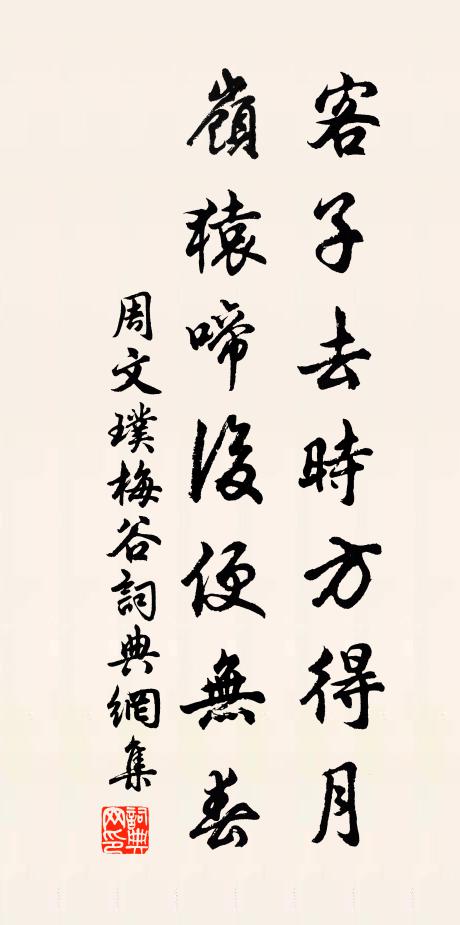 客子去時方得月
嶺猿啼後便無春
周文璞梅谷詞典網集
詞典網印